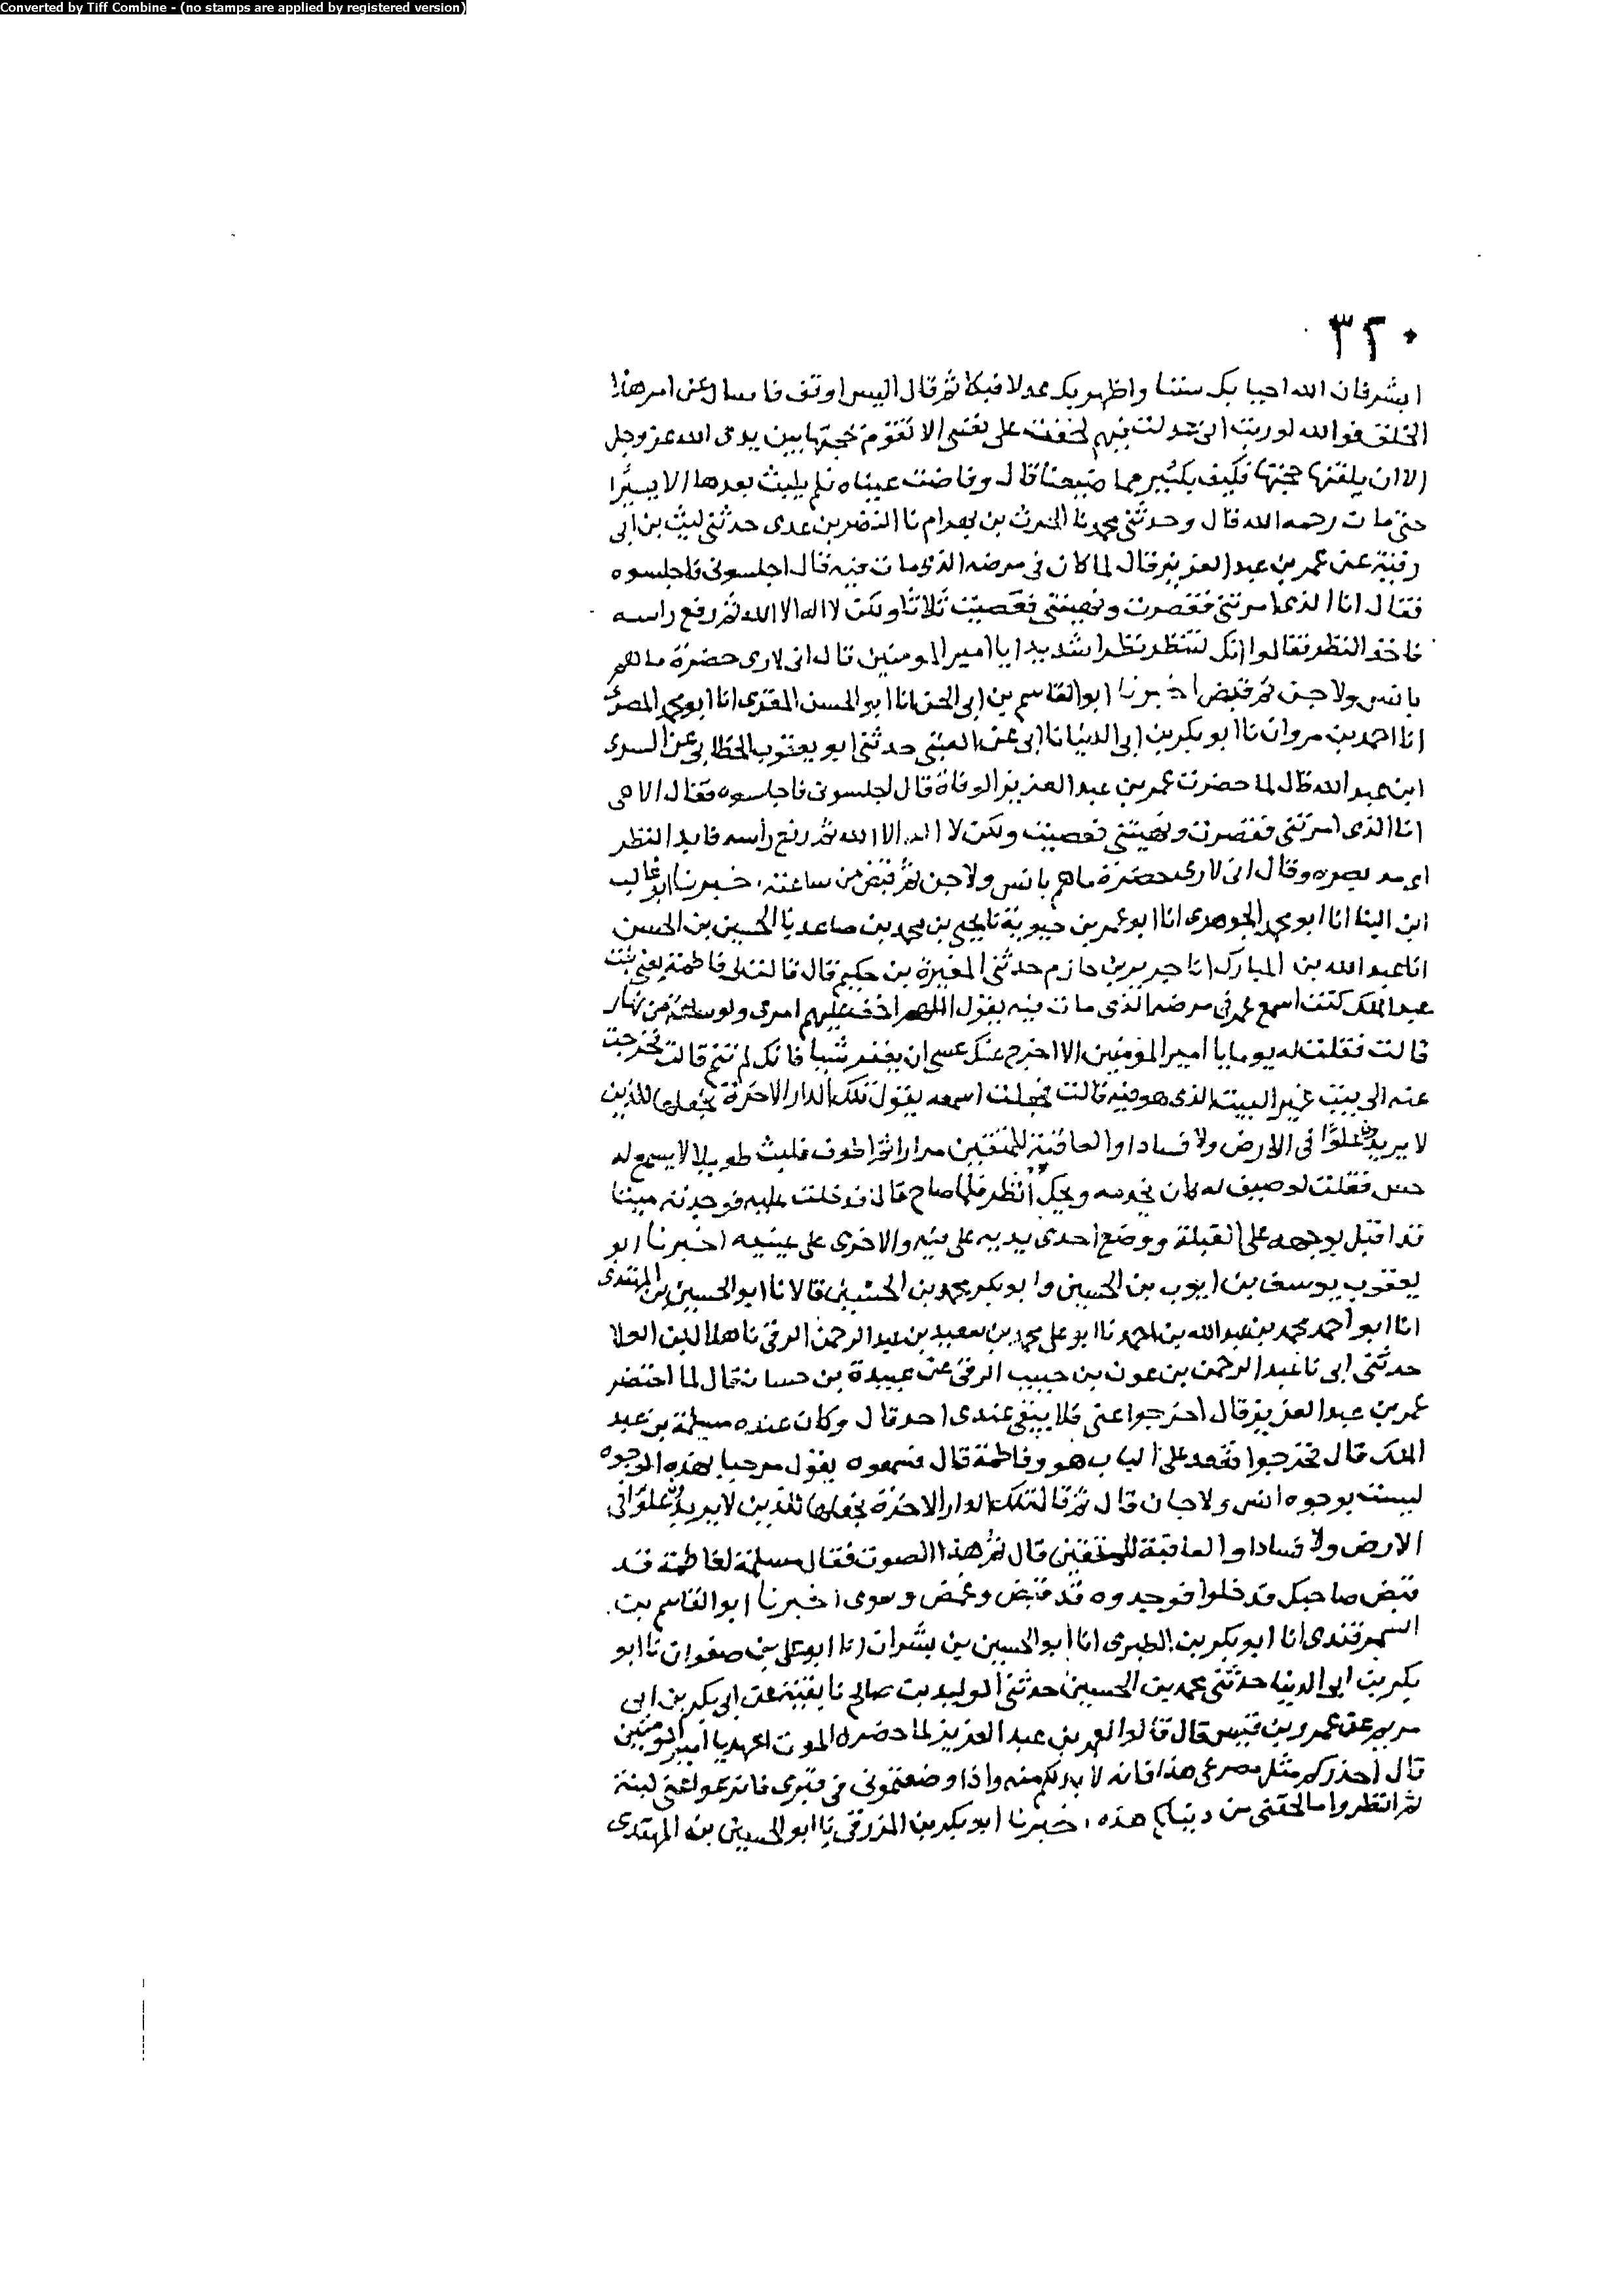 Converted by Tiff Combine - (no stamps are applied by registered version)
٣٢٠
ابشر فان الله احيا بك سننا واظهر بك عدلا فبكا ثم قال اليس اوقف فاسال عن امر هذا
الخلق فوالله لو ريت انى عدلت فيهم لخفت على نفسى الا تقوم بحجتها بين يدى الله عز وجل
الا ان يلقنها حجتها فكيف بكثير مما ضيعنا قال وفاضت عيناه فلم يلبث بعدها الا يسيرا
حتى مات رحمه الله قال وحدثنى محمد نا الحرث بن بهرام نا النضر بن عدى حدثنى ليث بن ابى
رقية عن عمر بن عبد العزيز قال لما كان فى مرضه الذى مات فيه قال اجلسونى فاجلسوه
فقال انا الذى امرتنى فقصرت ونهيتنى فعصيت ثلاثا ولكن لا اله الا الله ثم رفع راسه
فاخذ النظر فقالوا انك لتنظر نظرا شديدا يا امير المومنين قال انى لارى حضرة ما هم
بانس ولا جن ثم قبض اخبرنا ابو القاسم بن ابى الجن انا ابو الحسن المقرى انا ابو محمد المصرى
انا احمد بن مروان نا ابو بكر بن ابى الدنيا نا ابى عن العتبى حدثنى ابو يعقوب الخطابى عن السرى
ابن عبد الله قال لما حضرت عمر بن عبد العزيز الوفاة قال اجلسونى فاجلسوه فقال الاهى
انا الذى امرتنى فقصرت ونهيتنى فعصيت ولكن لا اله الا الله ثم رفع راسه فابد النظر
اى مد بصره وقال انى لارى حضرة ما هم بانس ولا جن ثم قبض من ساعته، خبرنا ابو غالب
ابن البنا انا ابو محمد الجوهرى انا ابو عمر بن حيوية نا يحيى بن محمد بن صاعد نا الحسين بن الحسن
انا عبد الله بن المبارك انا جرير بن حازم حدثنى المغيرة بن حكيم قال قالت لى فاطمة يعنى بنت
عبد الملك كنت اسمع عمر فى مرضه الذى مات فيه يقول اللهم اخف عليهم امرى ولو ساعة من نهار
قالت فقلت له يوما يا امير المؤمنين الا اخرج عنك عسى ان يغفر شيا فانك لم تنم قالت فخرجت
عنه الى بيت غير البيت الذى هو فيه قالت فجعلت اسمعه يقول تلك الدار الاخرة نجعلها للذين
لا يريدون علوا فى الارض ولا فسادا والعاقبة للمتقين مرارا ثم اطرف فلبث طويلا لا يسمع له
حس فقلت لوصيف له كان يخدمه ويحك انظر فلما صاح قال فدخلت عليه فوجدته ميتا
قد اقبل بوجهه على القبلة ووضع احدى يديه على فيه والاخرى على عينيه اخبرنا ابو
يعقوب يوسف بن ايوب بن الحسين وابو بكر محمد بن الحسين قالا نا ابو الحسين بن المهتدى
انا ابو احمد محمد بن عبد الله بن احمد نا ابو على محمد بن سعيد بن عبد الرحمن الرقى نا هلال بن العلا
حدثنى ابى نا عبد الرحمن بن عون بن حبيب الرقى عن عبيدة بن حسان قال لما احتضر
عمر بن عبد العزيز قال اخرجوا عنى فلا يبقى عندى احد قال وكان عنده مسلمة بن عبد
الملك قال فخرجوا فقعد على الباب هو وفاطمة قال فسمعوه يقول مرحبا بهذه الوجوه
ليست بوجوه انس ولا جان قال ثم قال تلك الدار الاخرة نجعلها للذين لا يريدون علوا فى
الارض ولا فسادا والعاقبة للمتقين قال ثم هدا الصوت فقال مسلمة لفاطمة قد
قبض صاحبك فدخلوا فوجدوه قد قبض وغمض وسوى اخبرنا ابو القاسم بن
السمرقندى انا ابو بكر بن الطبرى انا ابو الحسين بن بشران انا ابو على بن صفوان نا ابو
بكر بن ابى الدنيا حدثنى محمد بن الحسين حدثنى الوليد بن صالح نا بقية عن ابى بكر بن ابى
مريم عن عمرو بن قيس قال قالوا لعمر بن عبد العزيز لما حضره الموت اعهد يا امير المومنين
قال احذركم مثل مصرعى هذا فانه لا بد لكم منه واذا وضعتمونى فى قبرى فانزعوا عنى لبنة
ثم انظروا ما لحقنى من دنياكم هذه، خبرنا ابو بكر بن المزرقى نا ابو الحسين بن المهتدى